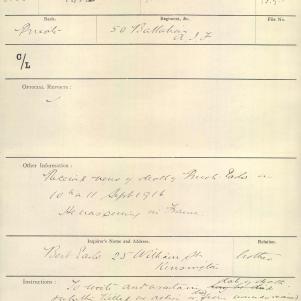 Rank. Regiment, &c. File No.
Private 50 Battalion
A.I.F
C/L
OFFICIAL REPORTS :
Other Information :
Received news of death of Private on
10th or 11 Sept 1916
He was serving in France.
Inquirer's Name and Address. Relation.
Bert 25 William St. brother
Kensington
Instructions : To write and ascertain date of death
killed in action or from wounds